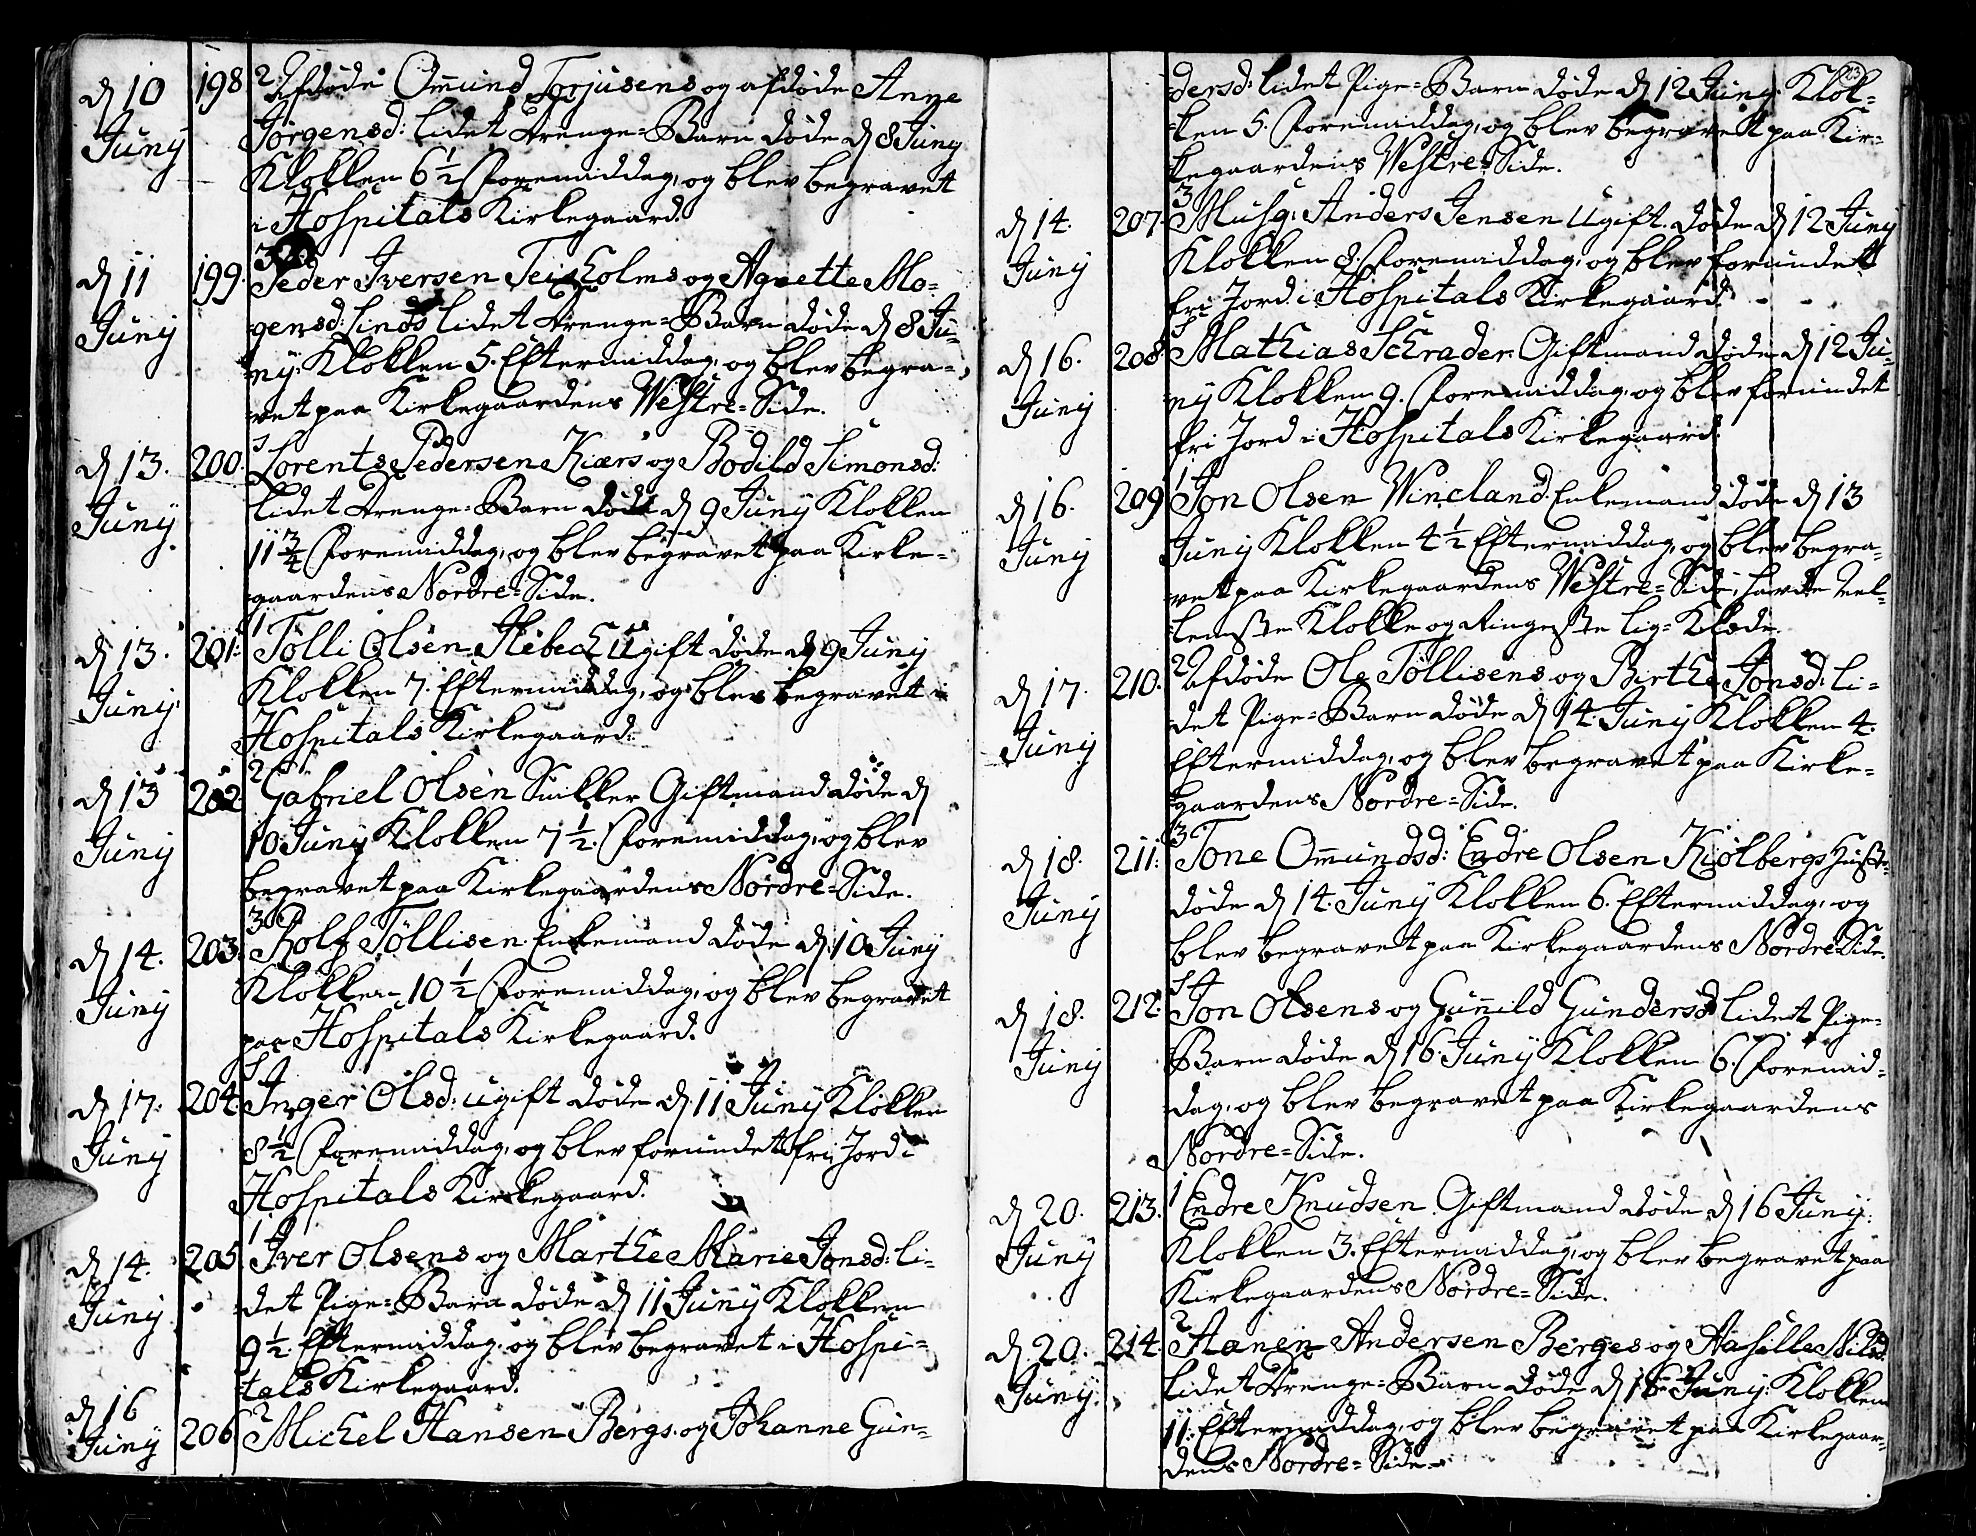 d 10 Juny 198 2 Afdøde Omund Torjusens og afdøde Anne
Jørgensd: lidet Drenge=Barn døde d 8 Juny
Klokken 6½ Foremiddag, og blev begravet
i Hospitals Kirkegaard.
d 11 Juny 199. 3 Peder Iversen Teisholms og Agnette Mo=
gensd: Linds lidet Drenge=Barn døde d 8 Ju=
ny: Klokken 5. Eftermiddag, og blev begra=
vet paa Kirkegaardens Westre=Side.
d 13. Juny. 200. Lorents Pedersen Kiærs og Bodild Simonsd:
lidet Drenge=Barn døde d 9 Juny Klokken
11¾ Foremiddag, og blev begravet paa Kirke=
gaardens Nordre=Side.
d 13. Juny. 201. 1 Tølli Olsen Hebech Ugift døde d 9 Juny
Klokken 7. Eftermiddag, og blev begravet i
Hospitals Kirkegaard.
d 13 Juny 202. 2 Gabriel Olsen Snikker Giftmand døde d
10 Juny Klokken 7½. Foremiddag, og blev
begravet paa Kirkegaardens Nordre=Side.
d 14. Juny 203. 3 Rolf Tøllisen Enkemand døde d 10 Juny
Klokken 10½ Foremiddag, og blev begravet
paa Hospitals Kirkegaard.
d 17. Juny 204. Inger Olsd: ugift døde d 11 Juny Klokken
8½ Foremiddag, og blev forundet fri Jord i
Hospitals Kirkegaard.
d 14. Juny 205. 1 Iver Olsens og Marthe Marie Jonsd: li=
det Pige=Barn døde d 11 Juny Klokken
9½. Eftermiddag, og blev begravet i Hospi=
tals Kirkegaard.
d 16 Juny 206. 2 Michel Hansen Bergs og Johanne Gun=
dersd: lidet Pige=Barn døde d 12 Juny Klok=
ken 5. Foremiddag, og blev begravet paa Kir=
kegaardens Westre=Side.
d 14. Juny 207. 3 Musq: Anders Jensen Ugift døde d 12 Juny
Klokken 8. Foremiddag, og blev forundet
fri Jord i Hospitals Kirkegaard.
d 16. Juny 208. Mathias Schrader Giftmand døde d 12 Ju=
ny Klokken 9. Foremiddag, og blev forundet
fri Jord i Hospitals Kirkegaard.
d 16. Juny 209 1 Jon Olsen Wincland Enkemand døde d 13
Juny Klokken 4½ Eftermiddag, og blev begra=
vet paa Kirkegaardens Westre=Side, havde
Klokke og Ringeste Lig=Klæde.
d 17. Juny 210. 2 Afdøde Ole Tøllisens og Birthe Jonsd: li=
det Pige=Barn døde d 14. Juny Klokken 4.
Eftermiddag, og blev begravet paa Kirke=
gaardens Nordre=Side.
d 18. Juny 211. 3 Tone Omundsd: Endre Olsen Kiølbergs
døde d 14. Juny Klokken 6. Eftermiddag, og
blev begravet paa Kirkegaardens Nordre=Side.
d 18. Juny 212. Jon Olsens og Gunild Gundersd lidet Pige=
Barn døde d 16. Juny Klokken 6. Foremid=
dag, og blev begravet paa Kirkegaardens
Nordre=Side.
d 20. Juny 213. 1 Endre Knudsen Giftmand døde d 16 Juny:
Klokken 3. Eftermiddag, og blev begravet paa
Kirkegaardens Nordre=Side.
d 20. Juny. 214. 2 Hanen Andersen Berges og Aasille Nilsd
lidet Drenge=Barn døde d 16 Juny: Klokken
11. Eftermiddag, og blev begravet paa Kirkegaar=
dens Nordre=Side.